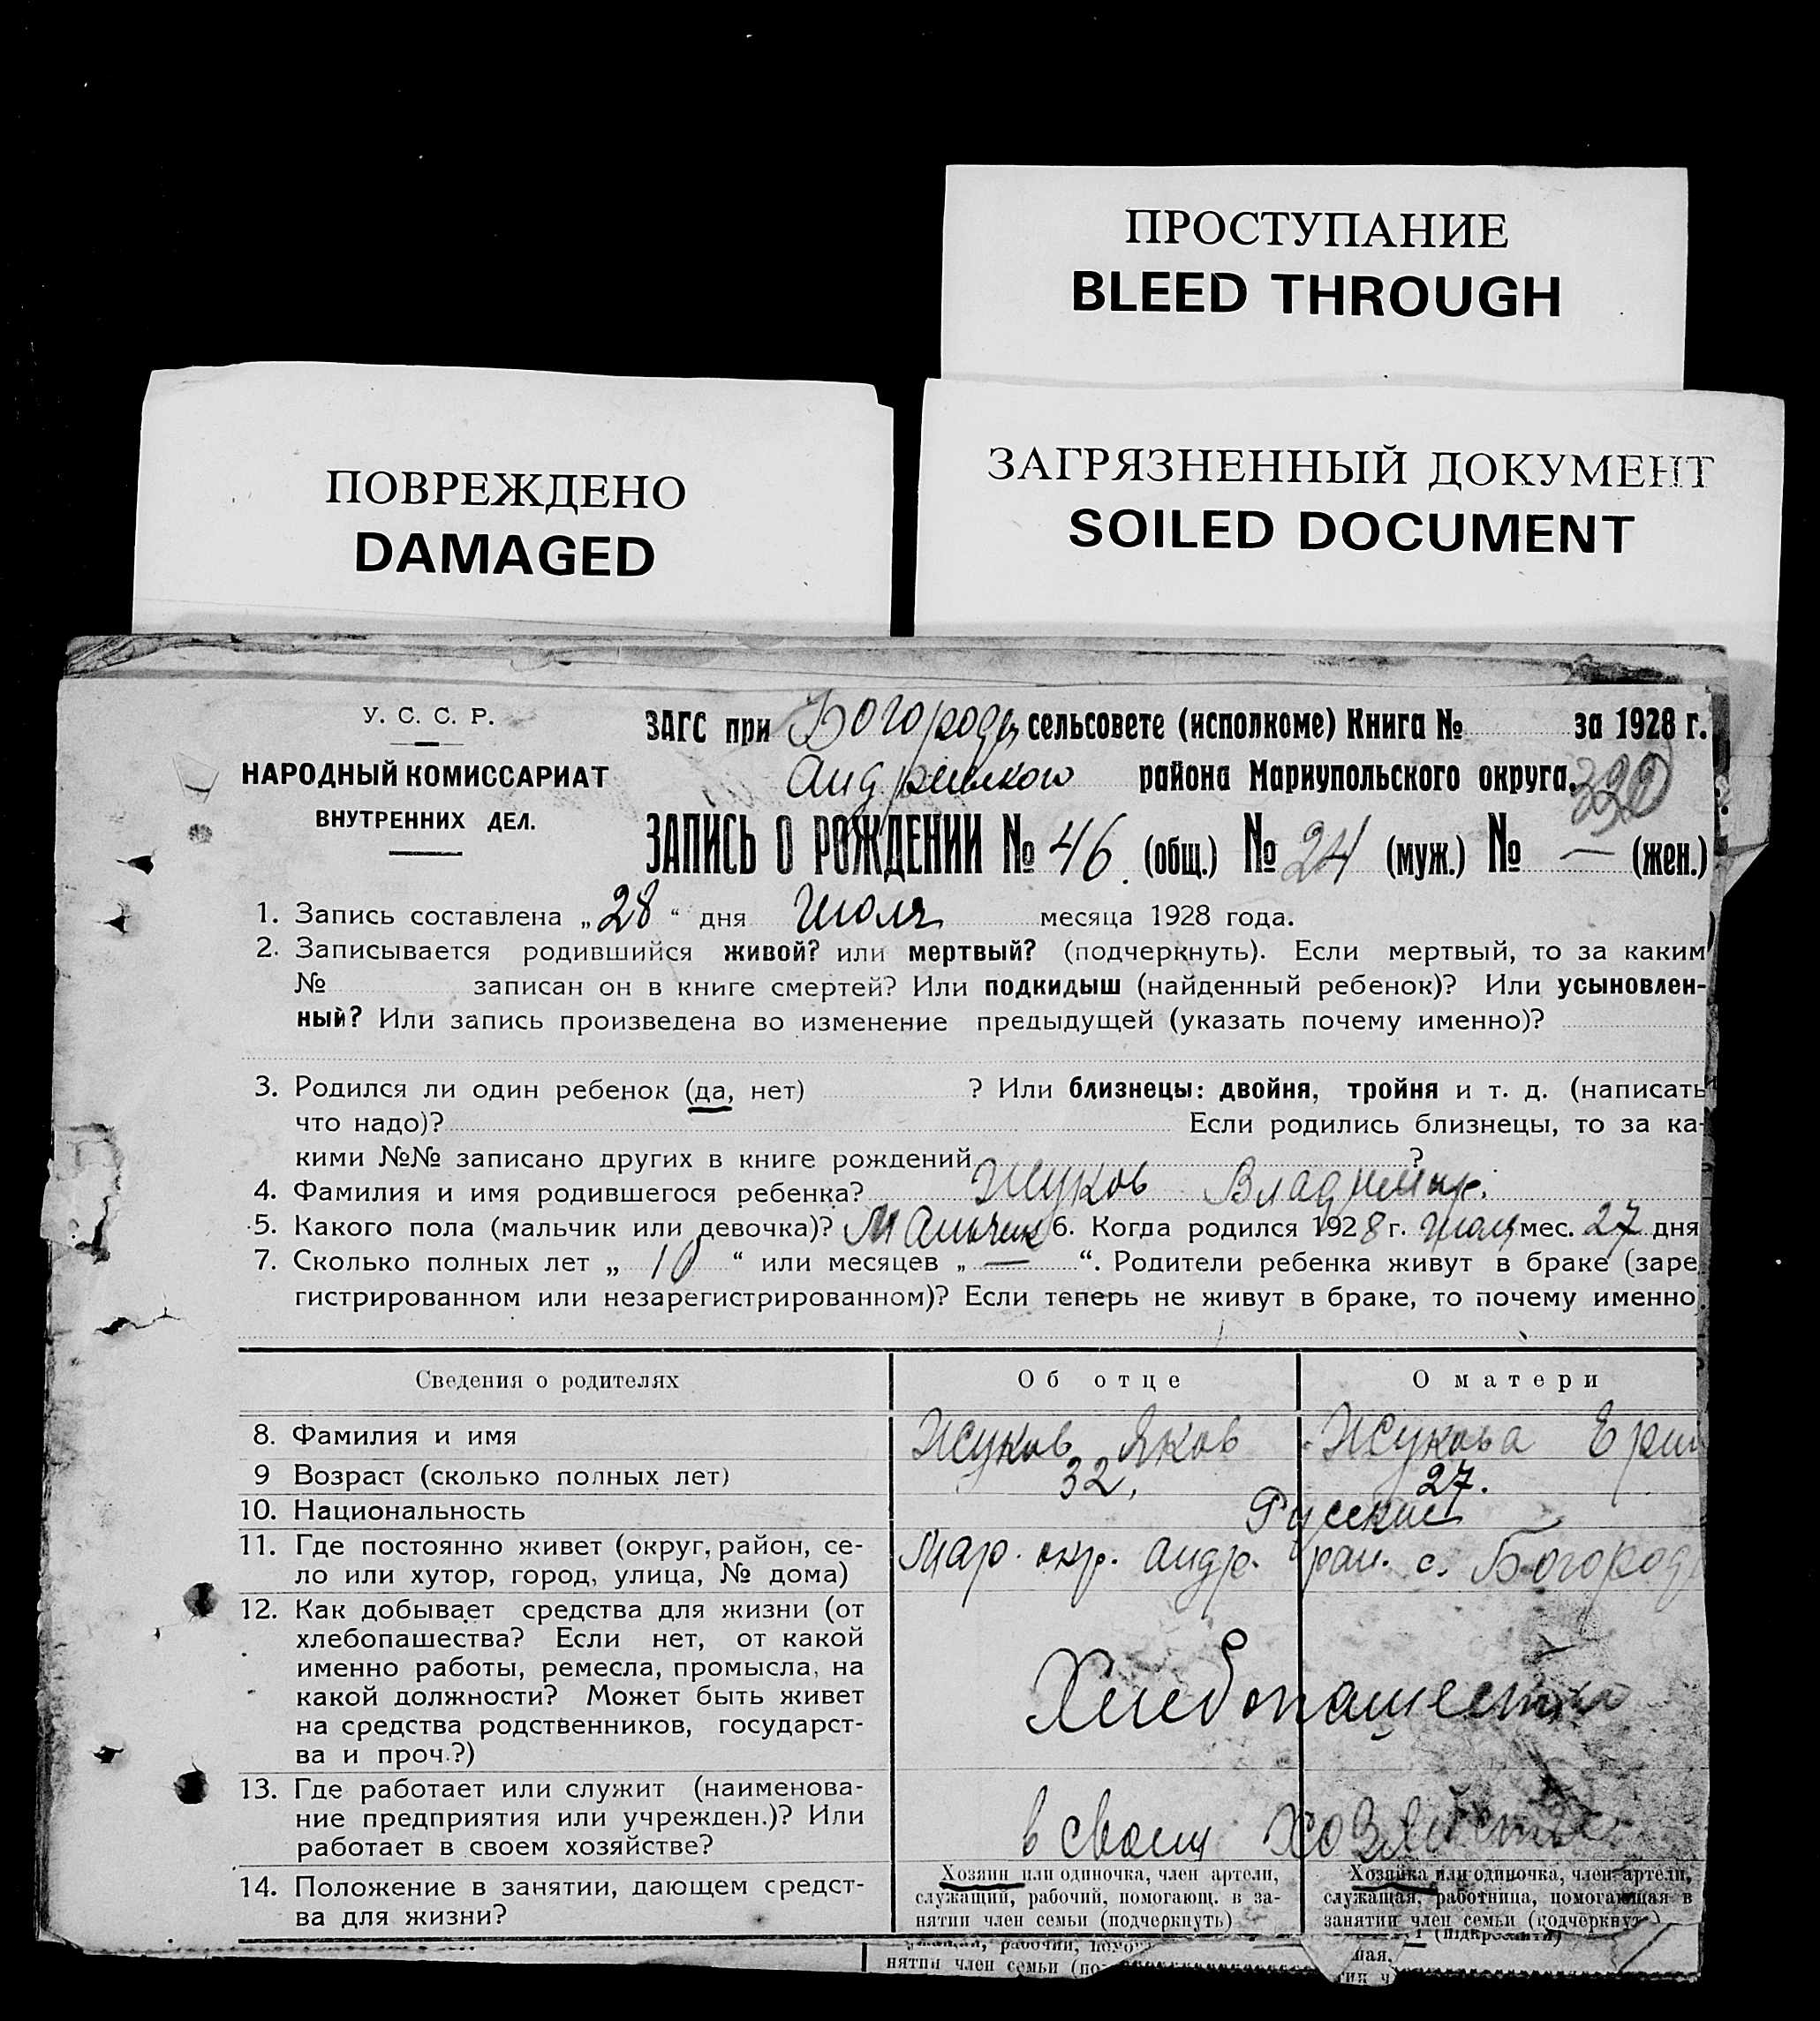 ПРОСТУПАНИЕ
BLEED THROUGH
ПОВРЕЖДЕНО
DAMAGED
ЗАГРЯЗНЕННЫЙ ДОКУМЕНТ
SOILED DOCUMENT
У. С. С. Р.
НАРОДНЫЙ КОМИССАРИАТ
ВНУТРЕННИХ ДЕЛ.
ЗАГС при Богород сельсовете (исполкоме) Книга № за 1928 г.
района Мариупольского округа.
ЗАПИСЬ О РОЖДЕНИИ № 46 (общ.) № 24 (муж.) № — (жен.)
1. Запись составлена „28“ дня Июля месяца 1928 года.
2. Записывается родившийся живой? или мертвый? (подчеркнуть). Если мертвый, то за каким
№ записан он в книге смертей? Или подкидыш (найденный ребенок)? Или усыновлен-
ный? Или запись произведена во изменение предыдущей (указать почему именно)?
3. Родился ли один ребенок (да, нет) ? Или близнецы: двойня, тройня и т. д. (написать
что надо)? Если родились близнецы, то за ка-
кими №№ записано других в книге рождений ?
4. Фамилия и имя родившегося ребенка? Жуков Владимир.
5. Какого пола (мальчик или девочка)? Мальчик 6. Когда родился 1928 г. Июля мес. 27 дня
7. Сколько полных лет „ 10 “ или месяцев „ — “. Родители ребенка живут в браке (заре
гистрированном или незарегистрированном)? Если теперь не живут в браке, то почему именно
Сведения о родителях Об отце О матери
8. Фамилия и имя Жуков Яков Жукова
9 Возраст (сколько полных лет) 32, 27.
10. Национальность Русские
11. Где постоянно живет (округ, район, се-
ло или хутор, город, улица, № дома) Мар. окр. андр. рай. с. Богород
12. Как добывает средства для жизни (от
хлебопашества? Если нет, от какой
именно работы, ремесла, промысла, на
какой должности? Может быть живет
на средства родственников, государст-
ва и проч.?) Хлебопашество
13. Где работает или служит (наименова-
ние предприятия или учрежден.)? Или
работает в своем хозяйстве? в своем хозяйстве
14. Положение в занятии, дающем средст-
ва для жизни?
Хозяин или одиночка, член артели,
служащий, рабочий, помогающ. в за-
нятии член семьи (подчеркнуть)
Хозяйка или одиночка, член артели,
служащая, работница, помогающая в
занятии член семьи (подчеркнут)
рабочий,
нятии член семьи